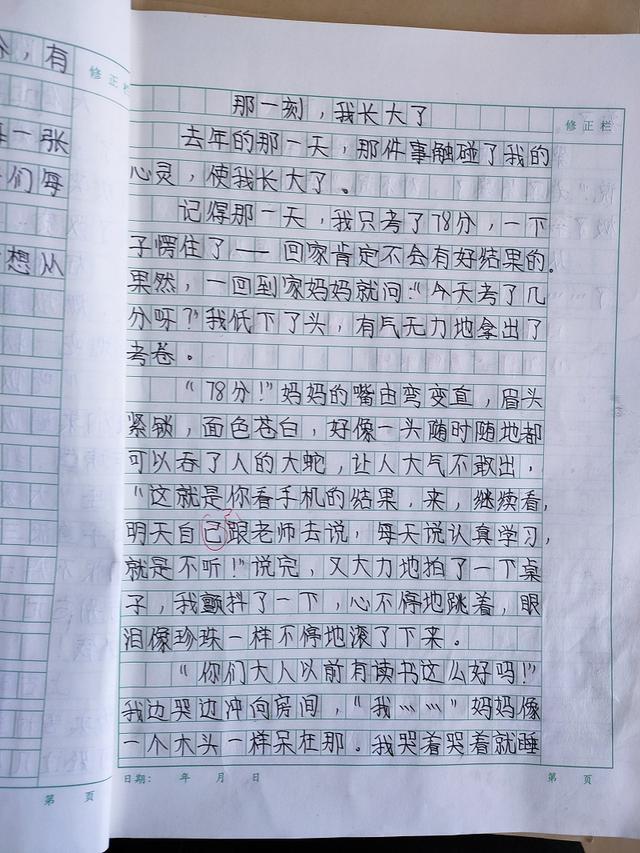 分，有
每一张
们每
想从
第 页
修正栏
那一刻，我长大了
修正栏
去年的那一天，那件事触碰了我的
心灵，使我长大了。
记得那一天，我只考了78分，一下
子愣住了——回家肯定不会有好结果的。
果然，一回到家妈妈就问："今天考了几
分呀？"我低下了头，有气无力地拿出了
考卷。
"78分！"妈妈的嘴由弯变直，眉头
紧锁，面色苍白，好像一头随时随地都
可以吞了人的大蛇，让人大气不敢出，
"这就是你看手机的结果，来，继续看，
明天自己跟老师去说，每天说认真学习，
就是不听！"说完，又大力地拍了一下桌
子，我颤抖了一下，心不停地跳着，眼
泪像珍珠一样不停地滚了下来。
"你们大人以前有读书这么好吗！"
我边哭边冲向房间，"我……"妈妈像
一个木头一样呆在那。我哭着哭着就睡
日期： 年 月 日
第 页